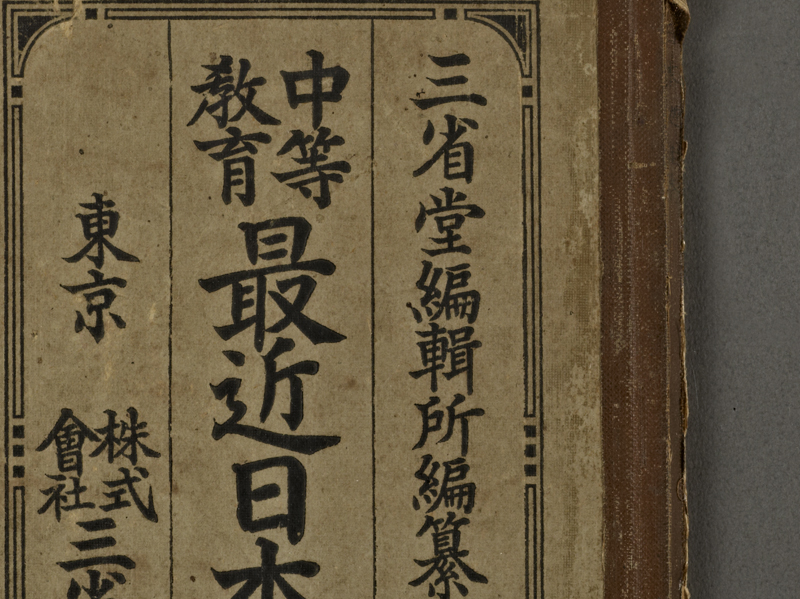 三省堂編輯所編纂
中等
教育
最近日本
東京
株式
會社
三省